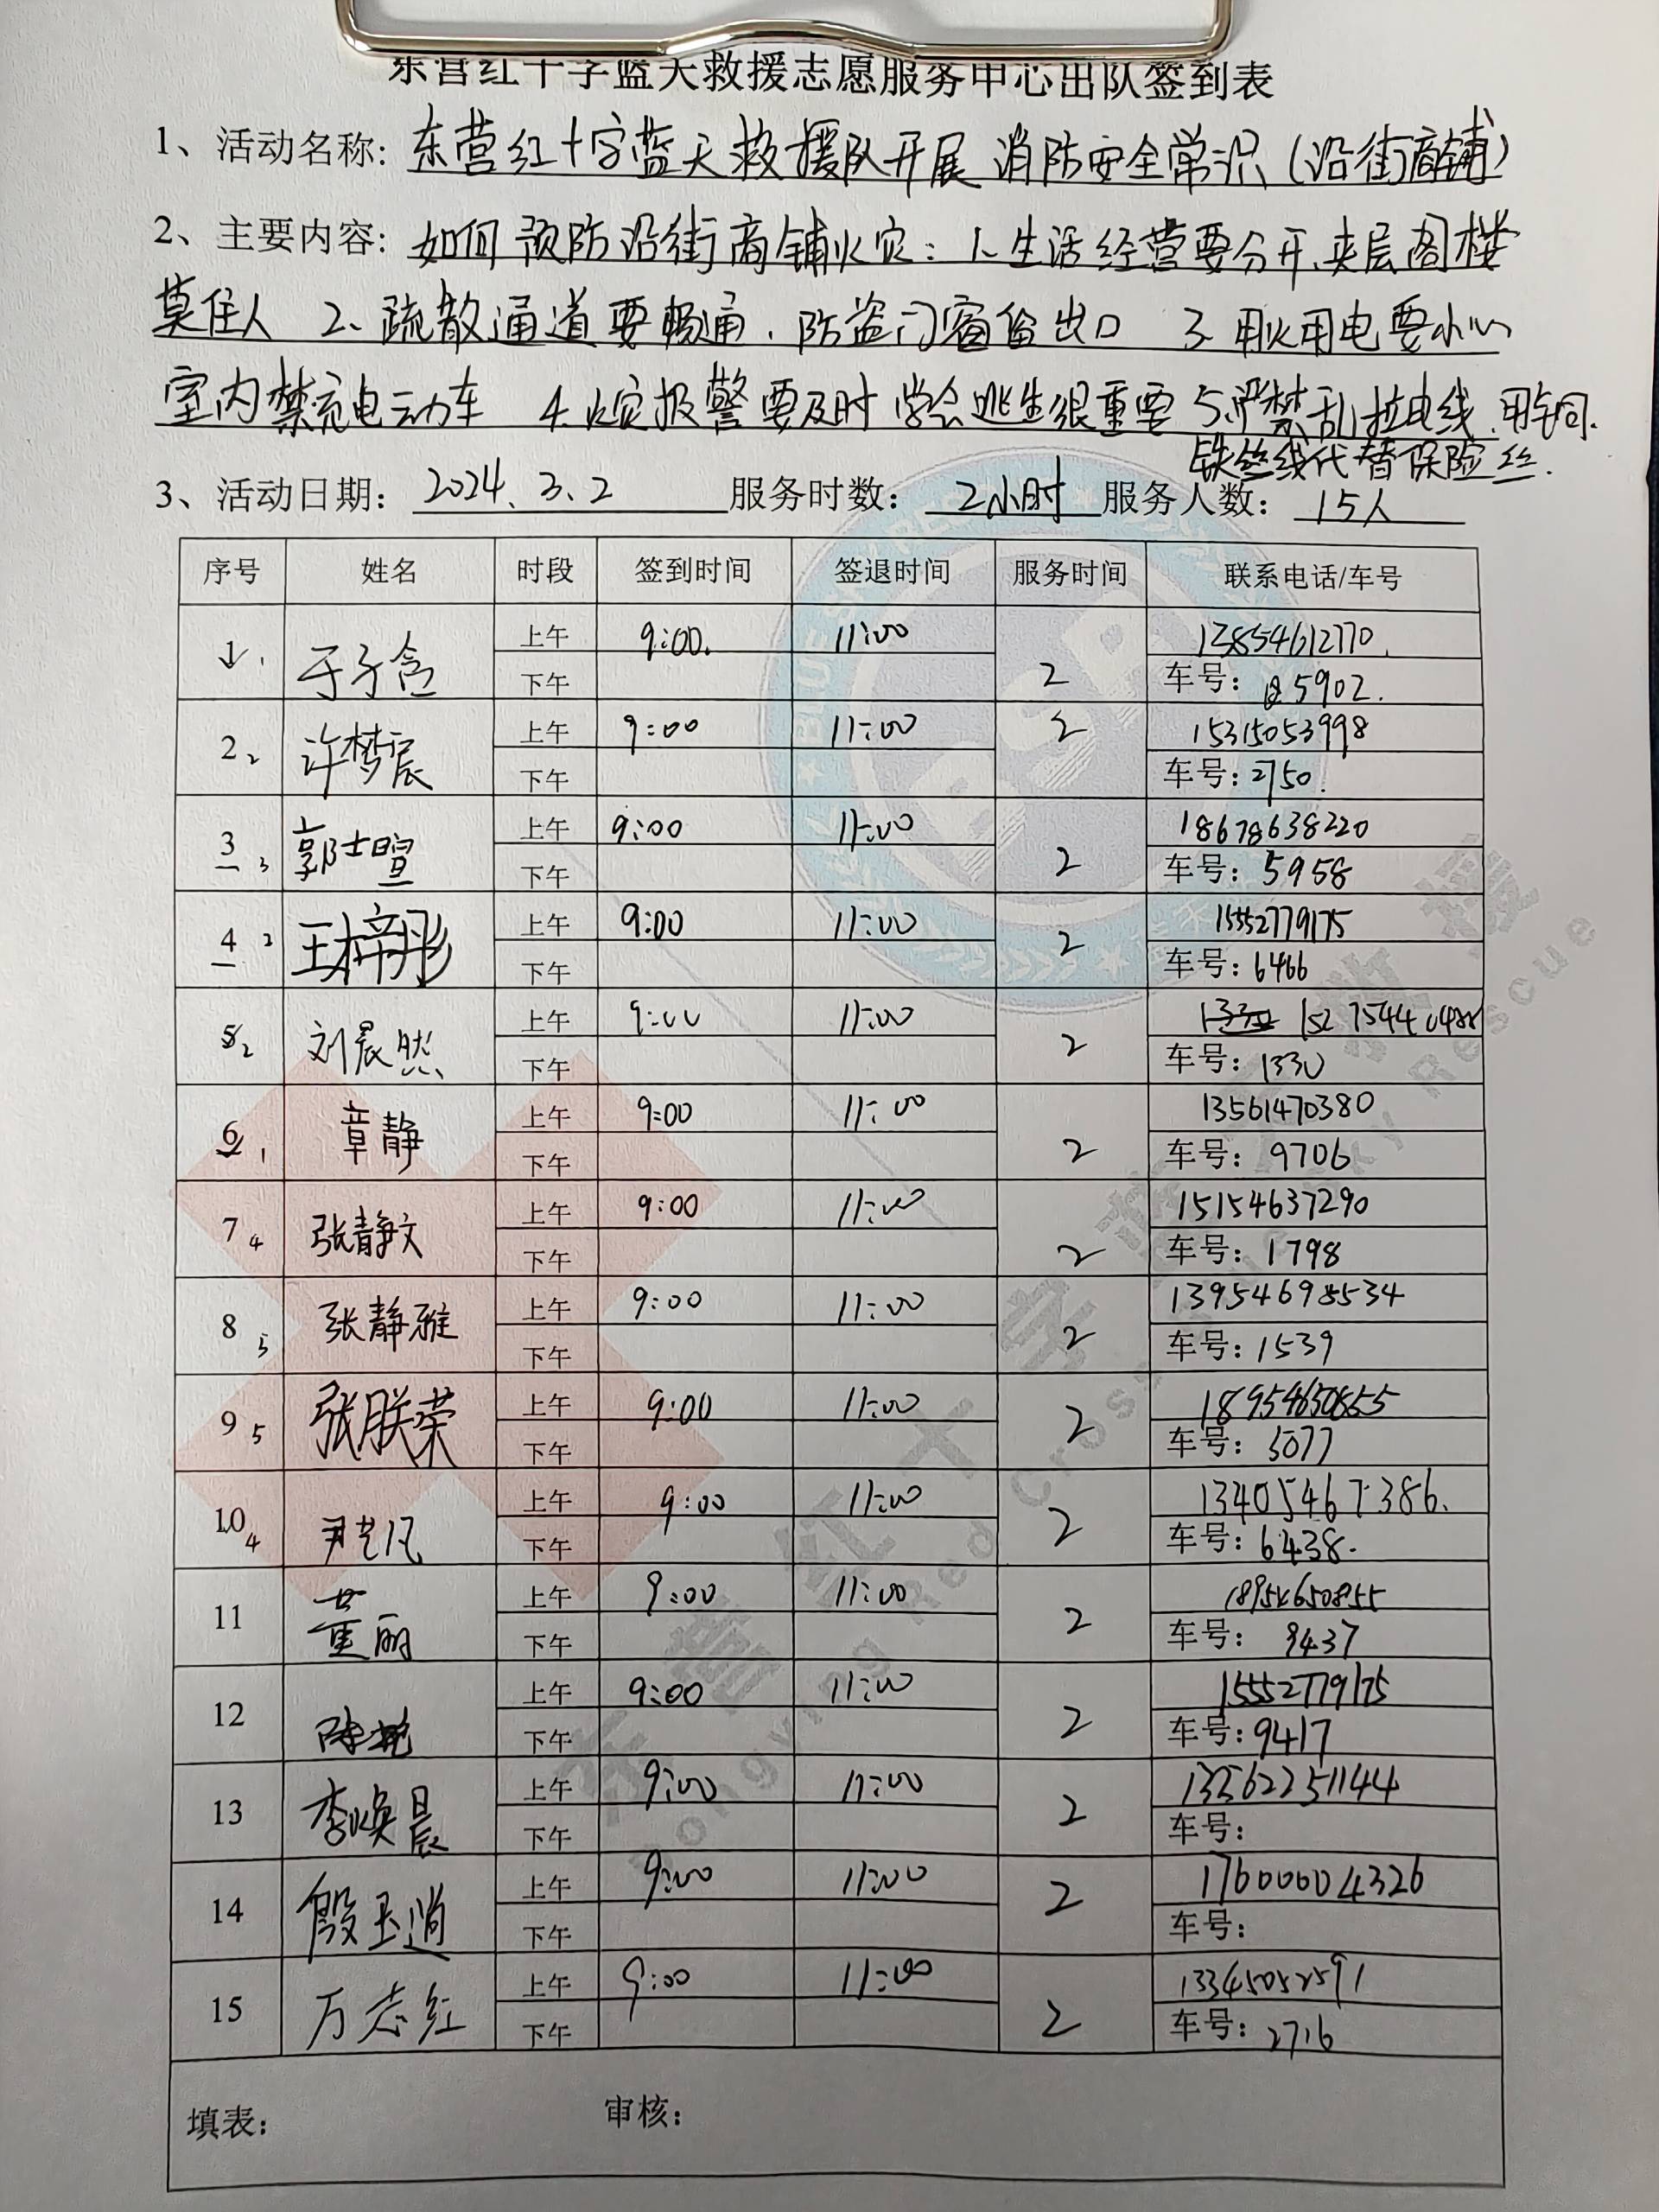 东营红十字蓝天救援志愿服务中心出队签到表
1、活动名称: 东营红十字蓝天救援队开展 消防安全常识(沿街商铺)
2、主要内容: 如何预防沿街商铺火灾: 1、生活经营要分开、夹层阁楼
莫住人 2、疏散通道要畅通、防盗门窗留出口 3、用火用电要小心
室内禁充电动车 4、火灾报警要及时 学会逃生很重要 5、严禁乱拉电线、用铜、
铁丝线代替保险丝.
3、活动日期: 2024.3.2 服务时数: 2小时 服务人数: 15人
序号 姓名 时段 签到时间 签退时间 服务时间 联系电话/车号
1 1 于子含 上午 9:00. 11:00 2 13854612770.
下午 车号: 5902.
2 2 许梦宸 上午 9:00 11:00 2 15315053998
下午 车号: 2750.
3 3 郭士暄 上午 9:00 11:00 2 18678638220
下午 车号: 5958
4 2 王梓彤 上午 9:00 11:00 2 15552779175
下午 车号: 6466
5 2 刘晨然 上午 9:00 11:00 2 152 7544 0488
下午 车号: 1330
6 1 章静 上午 9:00 11:00 2 13561470380
下午 车号: 9706
7 4 张静文 上午 9:00 11:00 2 15154637290
下午 车号: 1798
8 5 张静雅 上午 9:00 11:00 2 13954698534
下午 车号: 1539
9 5 张朕荣 上午 9:00 11:00 2 18954650855
下午 车号: 5077
10 4 尹艺凡 上午 9:00 11:00 2 13405467386.
下午 车号: 6438.
11 黄丽 上午 9:00 11:00 2 18954650855
下午 车号: 9437
12 陈艳 上午 9:00 11:00 2 15552779175
下午 车号: 9417
13 李焕晨 上午 9:00 11:00 2 13562251144
下午 车号:
14 殷玉道 上午 9:00 11:00 2 17600004326
下午 车号:
15 万志红 上午 9:00 11:00 2 13345052591
下午 车号: 2716
填表: 审核:
东营红十字蓝天救援
Dongying Red Cross Blue Sky Rescue
BSR